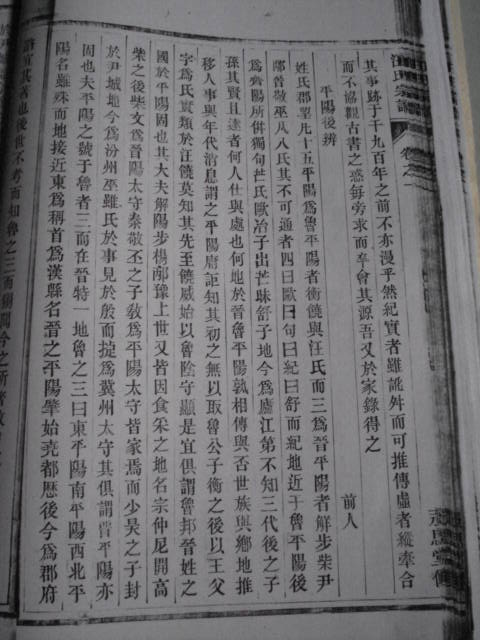 汪氏宗譜
卷之一
其事跡于千九百年之前不亦漫乎然紀實者雖訛舛而可推傳虛者縱牽合
而不協觀古書之惑每旁求而幸會其源吾又於家錄得之
平陽後辨
前人
姓氏郡望凡十五平陽為魯平陽者衛饒與汪氏而三為晉平陽者解步柴尹
鄔晉敬巫凡八氏其不可通者四曰歐曰句曰紀曰舒而紀地近于魯平陽後
為齊陽所併獨句芒氏歐冶子出芒昧舒子地今為廬江第不知三代後之子
孫其賢且達者何人仕與處也何地於晉魯平陽孰相傳與否世族與鄉地推
移人事與年代消息謂之平陽庸詎知其初之無以取魯公子衡之後以王父
字為氏實類於汪饒莫知其先至饒威始以魯陰守顯是宜俱謂魯邦晉姓之
國於平陽固也其大夫解陽步楊鄔豫上世又皆因食采之地名宗仲尼開高
柴之後柴文為晉陽太守秦敬丕之子教為平陽太守皆家焉而少昊之子封
於尹城地今為汾州巫雖氏於事見於殷而㨗為冀州太守其俱謂晉平陽亦
固也夫平陽之號于魯者三而在晉特一地魯之三曰東平陽南平陽西北平
陽名雖殊而地接近東為稱首為漢縣名晉之平陽肇始堯都歷後今為郡府